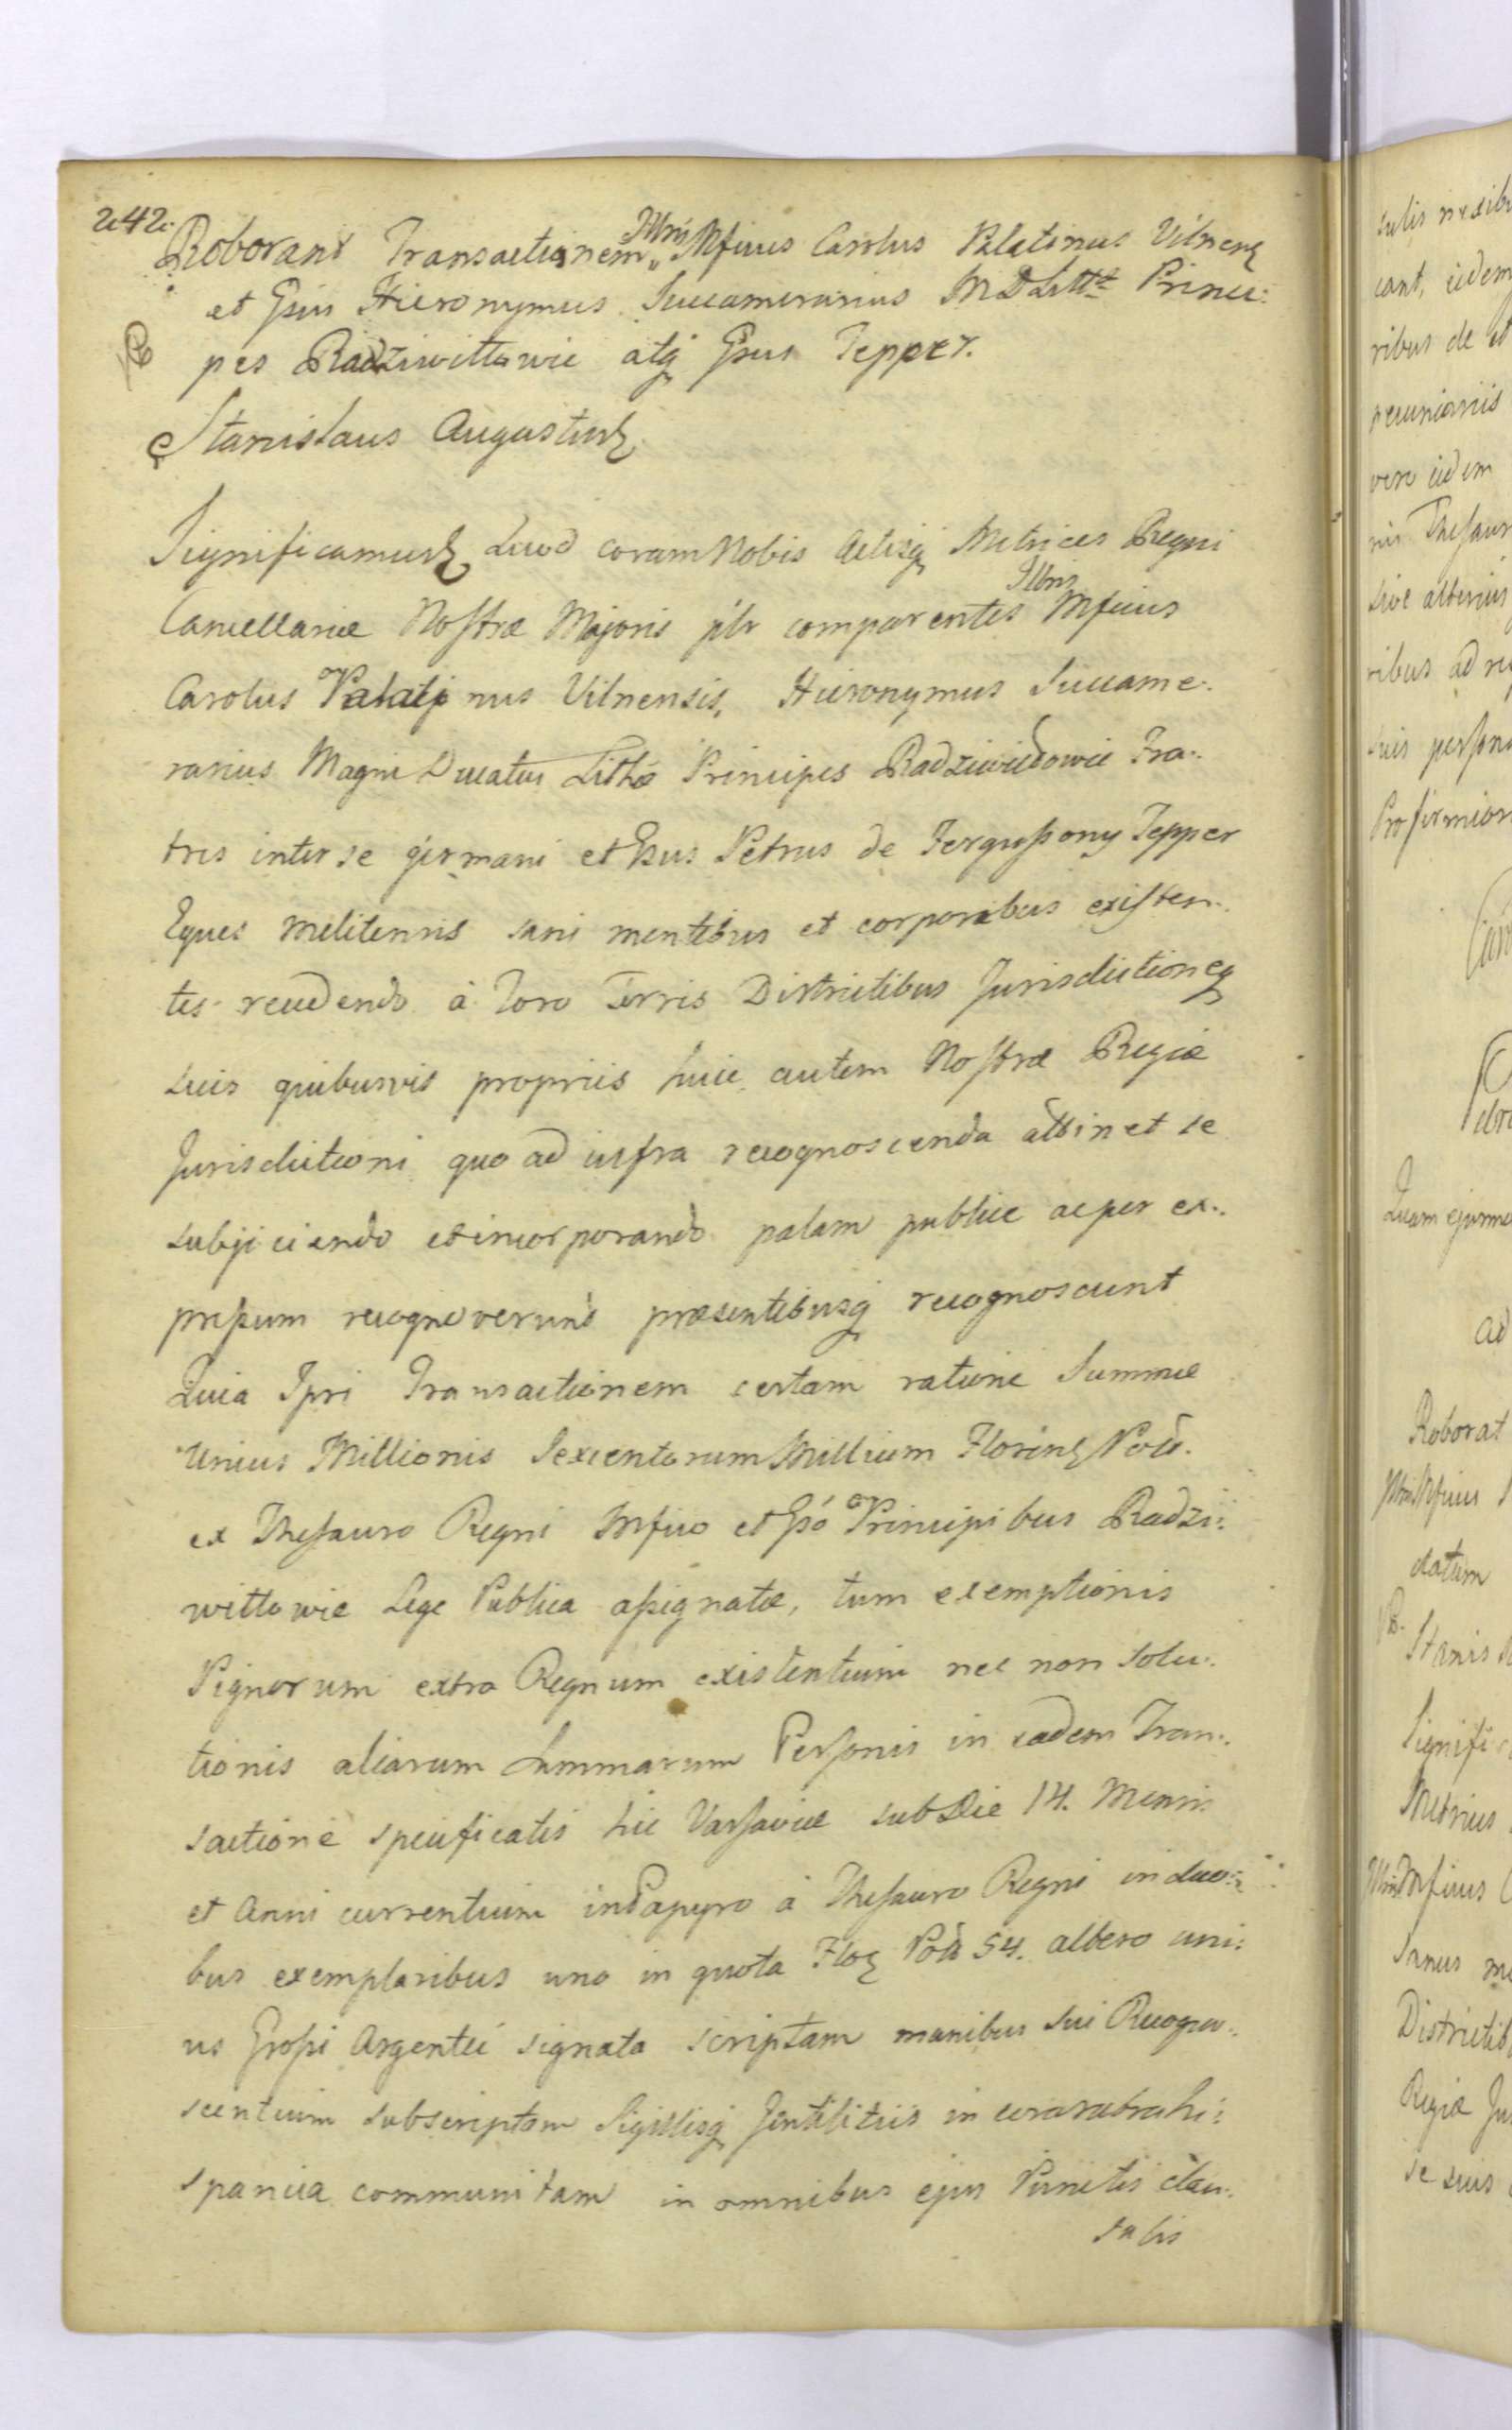 242.
Roborant Transactionem Illris Mficus Carolus Palatinus Vilnens
et Gsus Hieronymus Succamerarius M D Litt Princi:
pes Radziwiłłowie atq Gsus Tepper.
Stanislaus Augustus
Significamus Quod coram Nobis Actisq Metrices Regni
Cancellariæ Nostræ Majoris pltr comparentes Illris Mficus
Carolus Palatinus Vilnensis, Hieronymus Succame:
rarius Magni Ducatus Lithæ Principes Radziwiłłowie Fra:
tres inter se germani et Gsus Petrus de Fergusſony Tepper
Eques Melitensis sani mentibus et corporibus existen:
tes recedendo à Foro Terris Districtibus Jurisdictioneq
suis quibusvis propriis huic autem Nostræ Regiæ
Jurisdictioni quo ad infra recognoscenda attinet se
subjiciendo et incorporando palam publice ac per ex:
preſsum recognoverunt præsentibusq recognoscunt
Quia Ipsi Transactionem certam ratione Summæ
Unius Millionis Sexcentorum Millium Floren Pol.
ex Thesauro Regni Mfico et Gso Principibus Radzi:
wiłłowie Lege Publica aſsignatæ, tum exemptionis
Pignorum extra Regnum existentium nec non solu:
tionis aliarum Summarum Personis in eadem Tran:
sactione specificatis hic Varsaviæ sub Die 14. Mensis
et Anni currentium in Papyro à Thesauro Regni in duo:
bus exemplaribus uno in quota Flor Pol 54. altero uni:
us Groſsi Argentei signata scriptam manibus sui Recogno:
scentium subscriptam Sigillisq Gentilitiis in cera rubra hi:
spanica communitam in omnibus ejus Punctis clau:
sulis